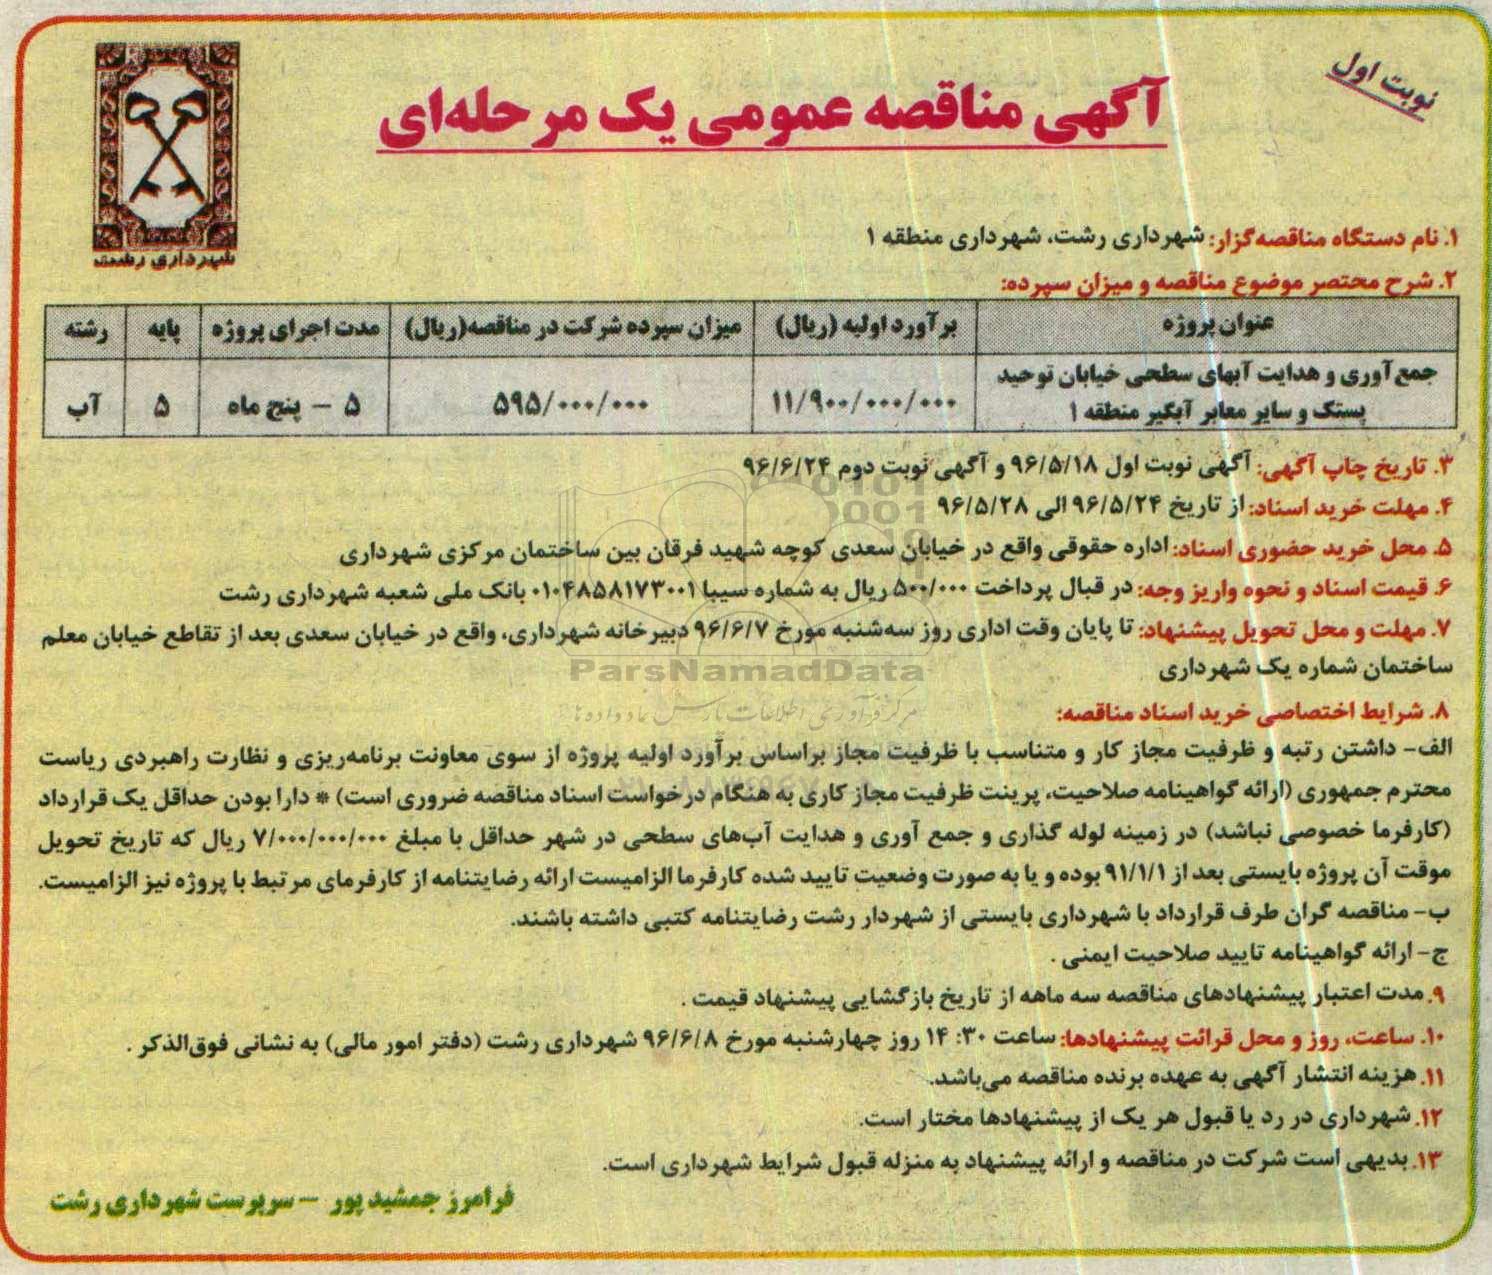 نوبت اول
آگهی مناقصه عمومی یک مرحله‌ای
شهرداری رشت
۱. نام دستگاه مناقصه‌گزار: شهرداری رشت، شهرداری منطقه ۱
۲. شرح مختصر موضوع مناقصه و میزان سپرده:
عنوان پروژه | برآورد اولیه (ریال) | میزان سپرده شرکت در مناقصه(ریال) | مدت اجرای پروژه | پایه | رشته
جمع‌آوری و هدایت آبهای سطحی خیابان توحید
پستک و سایر معابر آبگیر منطقه ۱ | ۱۱/۹۰۰/۰۰۰/۰۰۰ | ۵۹۵/۰۰۰/۰۰۰ | ۵ - پنج ماه | ۵ | آب
۳. تاریخ چاپ آگهی: آگهی نوبت اول ۹۶/۵/۱۸ و آگهی نوبت دوم ۹۶/۶/۲۴
۴. مهلت خرید اسناد: از تاریخ ۹۶/۵/۲۴ الی ۹۶/۵/۲۸
۵. محل خرید حضوری اسناد: اداره حقوقی واقع در خیابان سعدی کوچه شهید فرقان بین ساختمان مرکزی شهرداری
۶. قیمت اسناد و نحوه واریز وجه: در قبال پرداخت ۵۰۰/۰۰۰ ریال به شماره سیبا ۰۱۰۴۸۵۸۱۷۳۰۰۱ بانک ملی شعبه شهرداری رشت
۷. مهلت و محل تحویل پیشنهاد: تا پایان وقت اداری روز سه‌شنبه مورخ ۹۶/۶/۷ دبیرخانه شهرداری، واقع در خیابان سعدی بعد از تقاطع خیابان معلم
ساختمان شماره یک شهرداری
ParsNamadData
مرکز فرآوری اطلاعات پارس نماد داده ها
۸. شرایط اختصاصی خرید اسناد مناقصه:
الف- داشتن رتبه و ظرفیت مجاز کار و متناسب با ظرفیت مجاز براساس برآورد اولیه پروژه از سوی معاونت برنامه‌ریزی و نظارت راهبردی ریاست
محترم جمهوری (ارائه گواهینامه صلاحیت، پرینت ظرفیت مجاز کاری به هنگام درخواست اسناد مناقصه ضروری است) * دارا بودن حداقل یک قرارداد
(کارفرما خصوصی نباشد) در زمینه لوله گذاری و جمع آوری و هدایت آب‌های سطحی در شهر حداقل با مبلغ ۷/۰۰۰/۰۰۰/۰۰۰ ریال که تاریخ تحویل
موقت آن پروژه بایستی بعد از ۹۱/۱/۱ بوده و یا به صورت وضعیت تایید شده کارفرما الزامیست ارائه رضایتنامه از کارفرمای مرتبط با پروژه نیز الزامیست.
ب- مناقصه گران طرف قرارداد با شهرداری بایستی از شهردار رشت رضایتنامه کتبی داشته باشند.
ج- ارائه گواهینامه تایید صلاحیت ایمنی .
۹. مدت اعتبار پیشنهادهای مناقصه سه ماهه از تاریخ بازگشایی پیشنهاد قیمت .
۱۰. ساعت، روز و محل قرائت پیشنهادها: ساعت ۱۴:۳۰ روز چهارشنبه مورخ ۹۶/۶/۸ شهرداری رشت (دفتر امور مالی) به نشانی فوق‌الذکر .
۱۱. هزینه انتشار آگهی به عهده برنده مناقصه می‌باشد.
۱۲. شهرداری در رد یا قبول هر یک از پیشنهادها مختار است.
۱۳. بدیهی است شرکت در مناقصه و ارائه پیشنهاد به منزله قبول شرایط شهرداری است.
فرامرز جمشیدپور - سرپرست شهرداری رشت